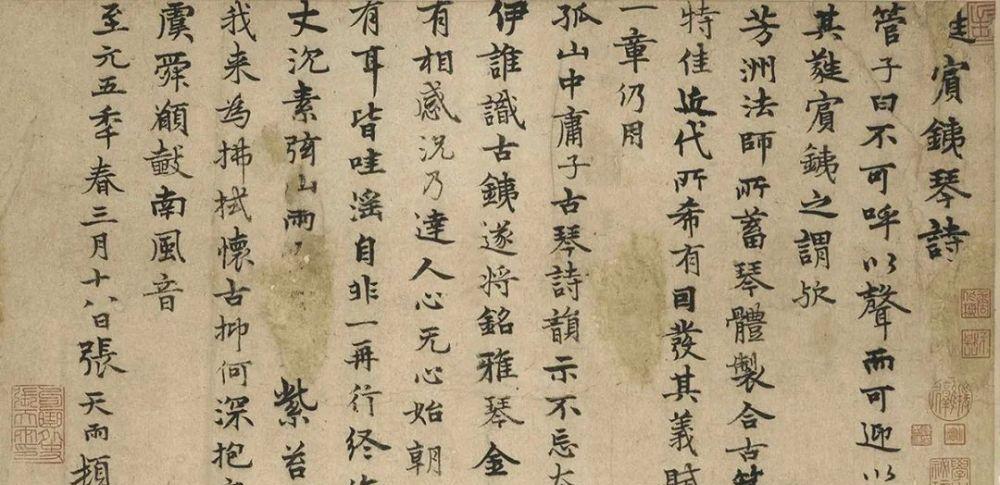 賓銕琴詩
管子曰不可呼以聲而可迎以
其蕤賓銕之謂欤
芳洲法師所蓄琴體製合古
特佳近代所希有因發其義賦
一章仍用
孤山中庸子古琴詩韻示不忘
伊誰識古銕遂將銘雅琴金
有相感況乃達人心无心始朝
有耳皆哇滛自非一再行終
丈沉素弦山雨 紫苔
我来為拂拭懷古抑何深抱
虞舜願鼓南風音
至元五秊春三月十八日張天雨頓